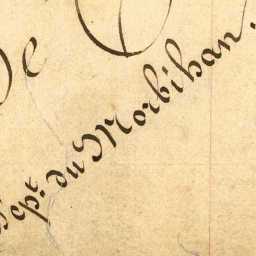 De C
Dépt. du Morbihan.